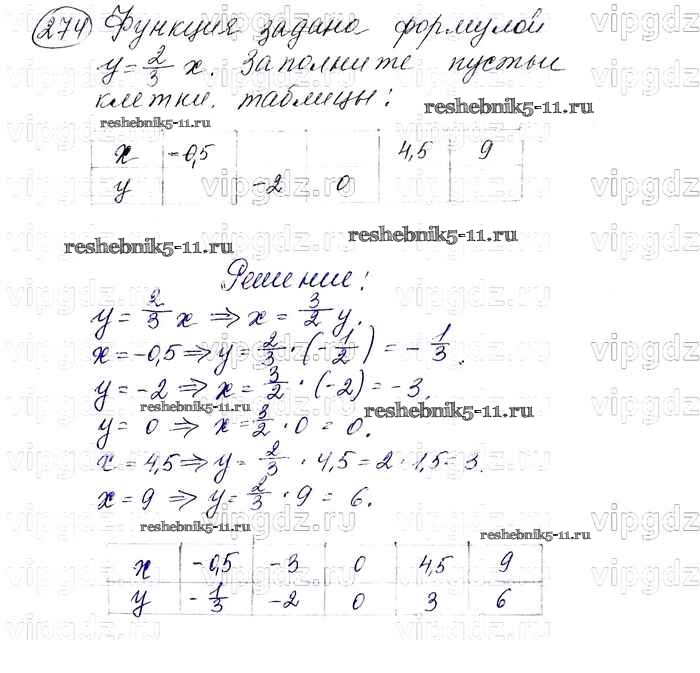 274 Функция задана формулой
y = 2/3 x. Заполните пустые
клетки таблицы:
reshebnik5-11.ru
reshebnik5-11.ru
x -0,5 4,5 9
y -2 0
reshebnik5-11.ru
reshebnik5-11.ru
Решение:
y = 2/3 x ⇒ x = 3/2 y.
x = -0,5 ⇒ y = 2/3 · (-1/2) = -1/3.
y = -2 ⇒ x = 3/2 · (-2) = -3
reshebnik5-11.ru
reshebnik5-11.ru
y = 0 ⇒ x = 3/2 · 0 = 0.
x = 4,5 ⇒ y = 2/3 · 4,5 = 2 · 1,5 = 3.
x = 9 ⇒ y = 2/3 · 9 = 6.
reshebnik5-11.ru
reshebnik5-11.ru
x -0,5 -3 0 4,5 9
y -1/3 -2 0 3 6
vipgdz.ru